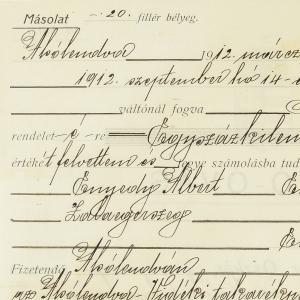 Másolat -.20. fillér bélyeg.
Alsólendva 1912. márcz
1912. szeptember hó 14-
váltónál fogva
rendelet-é-re Egyszázkilen
értékét felvettem és számolásba tud
Enyedy Albert
Zalaegerszeg
Fizetendő Alsólendván
Alsólendva-Vidéki takarék